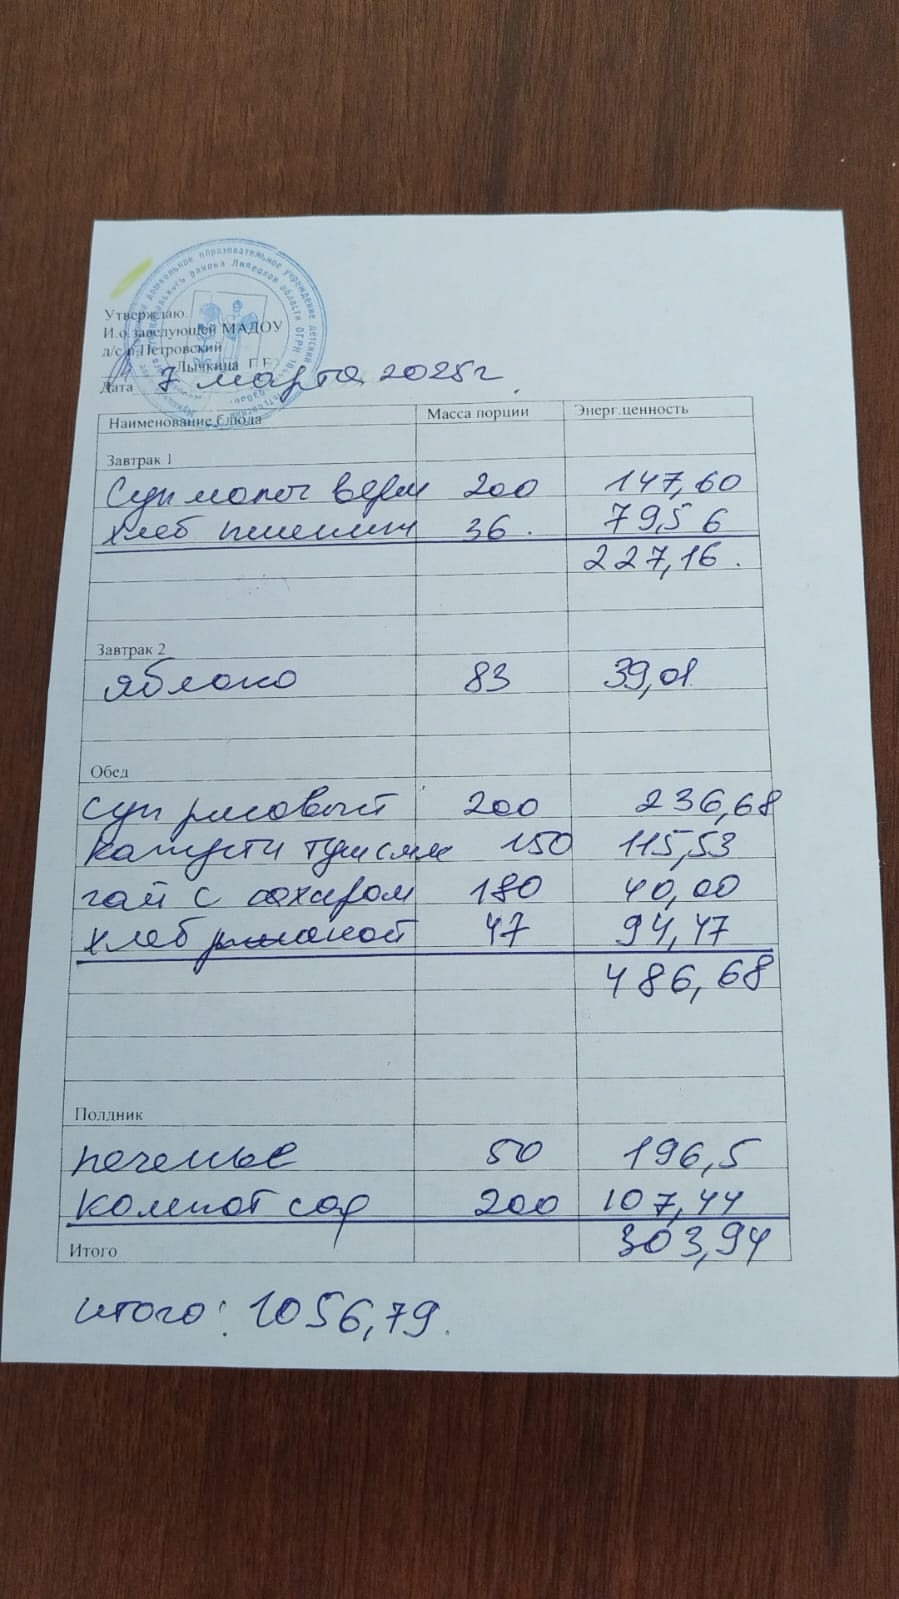 Утверждаю.
И.о.заведующей МАДОУ
д/с п.Петровский
Лычкина Г.Е
Дата 7 марта 2025г
Наименование блюда Масса порции Энерг.ценность
Завтрак 1
Суп молоч верм 200 147,60
хлеб пшеничн 36. 79,56
227,16.
Завтрак 2
яблоко 83 39,01
Обед
суп рисовый 200 236,68
капуста тушеная 150 115,53
чай с сахаром 180 40,00
хлеб ржаной 47 94,47
486,68
Полдник
печенье 50 196,5
компот сф 200 107,44
Итого 303,94
итого: 1056,79.